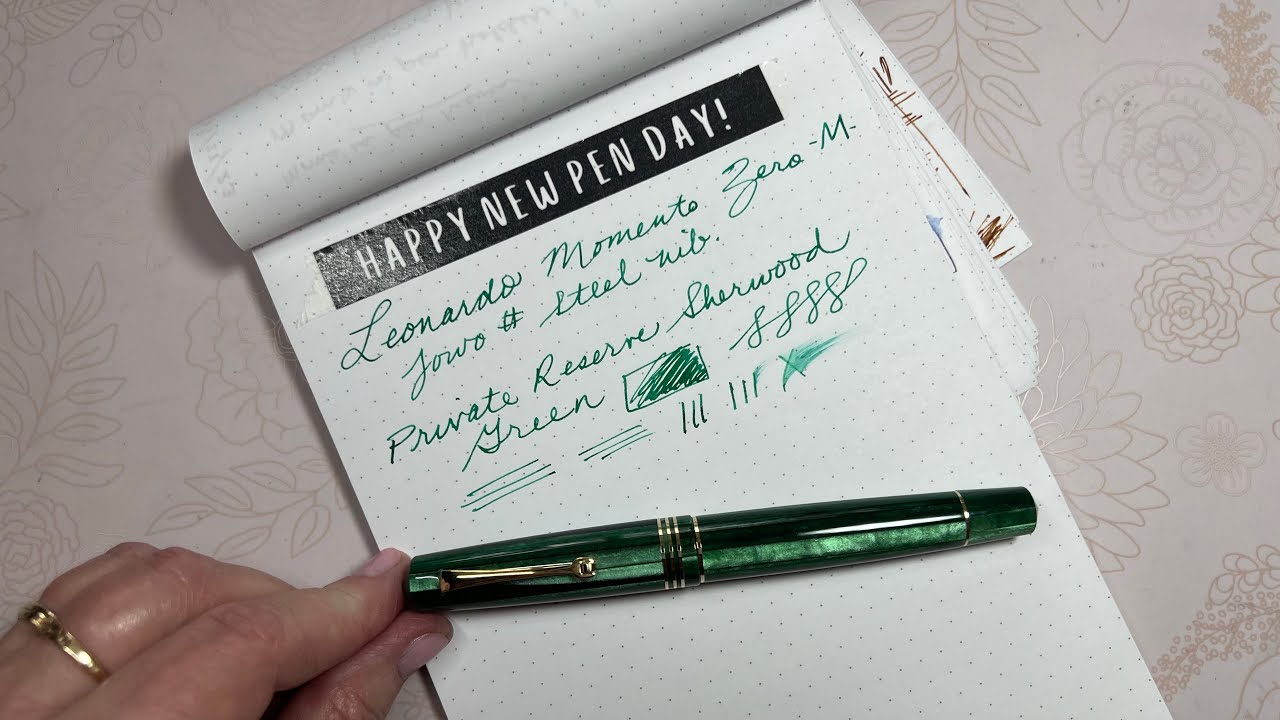 HAPPY NEW PEN DAY!
Leonardo Momento Zero -M-
Jowo # Steel nib.
Private Reserve Sherwood
Green